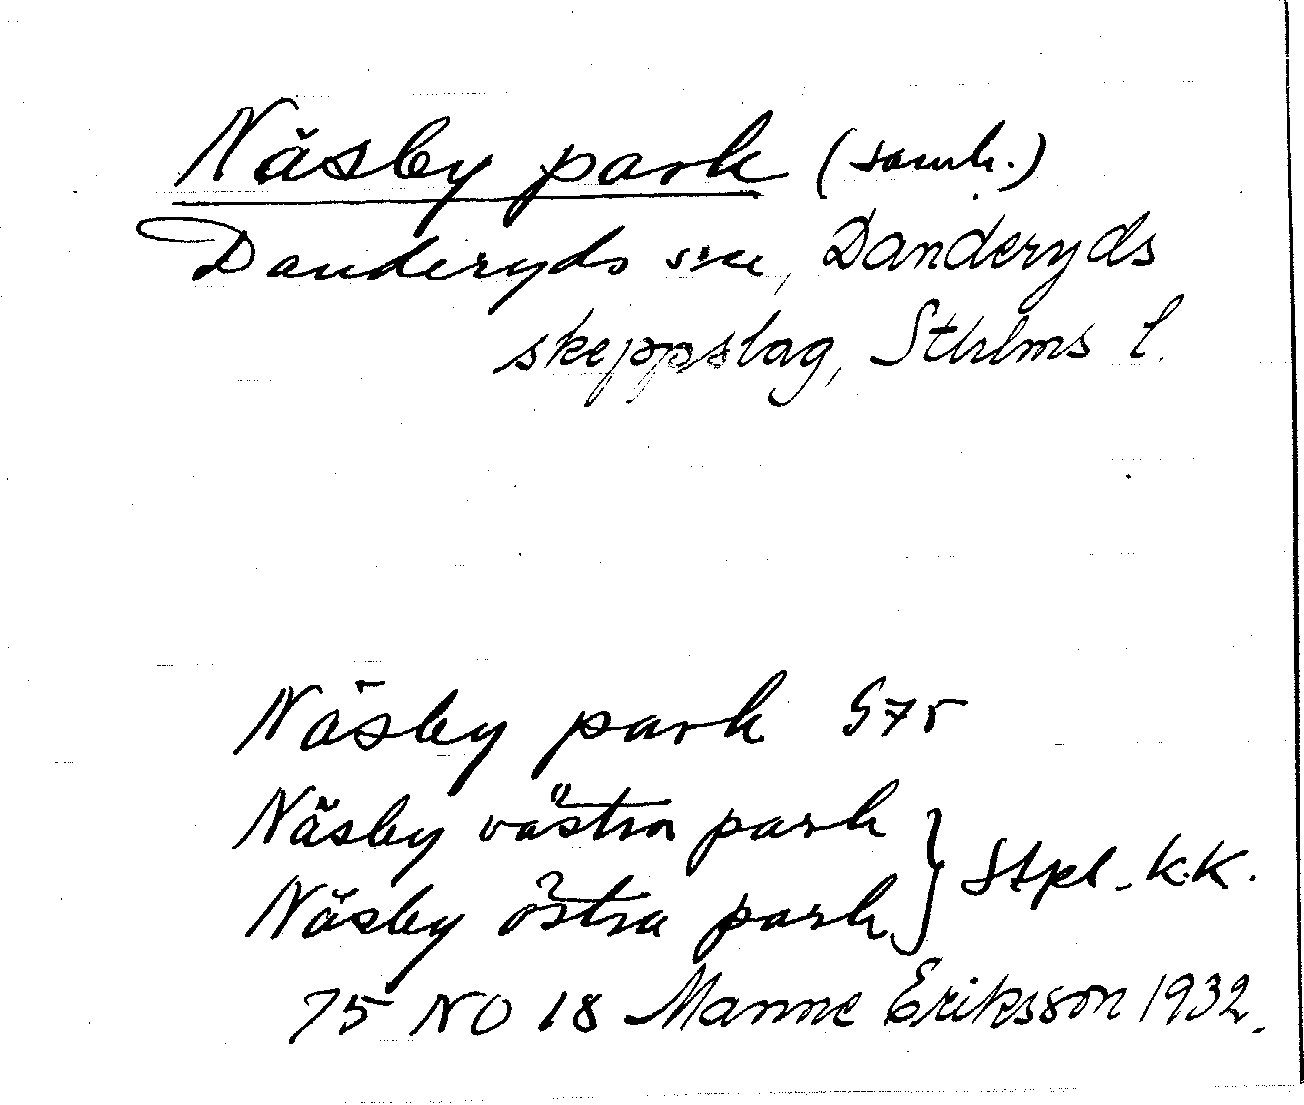 Näsby park (samh.)
Danderyds sn, Danderyds
skeppslag, Sthlms l.
Näsby park GTr
Näsby västra park
Näsby östra park } Stpl. K.K.
75 NO 18 Manne Eriksson 1932.